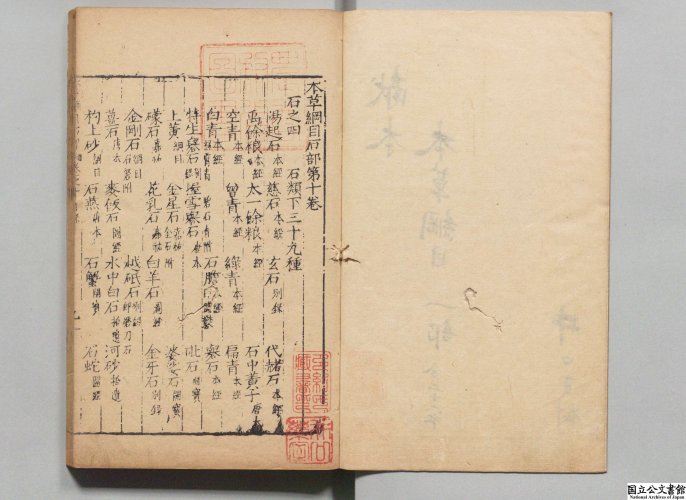 献本
本草綱目 一部
本草綱目石部第十卷
石之四 石類下三十九種
陽起石 本經 慈石 本經 玄石 別錄 代赭石 本經
禹餘粮 本經 太一餘粮 本經 石中黃子 唐本
空青 本經 曾青 本經 綠青 本經 扁青 本經
白青 本經 石膽 本經 礜石 本經
特生礜石 別錄 握雪礜石 唐本 砒石 開寶
土黃 綱目 金星石 嘉祐 婆娑石 開寶
礞石 嘉祐 花乳石 嘉祐 白羊石 圖經 金牙石 別錄
金剛石 綱目 砭石 附 越砥石 別錄
薑石 唐本 麥飯石 圖經 水中白石 拾遺 河砂 拾遺
杓上砂 綱目 石燕 唐本 石蟹 開寶 石蛇 圖經
国立公文書館
National Archives of Japan